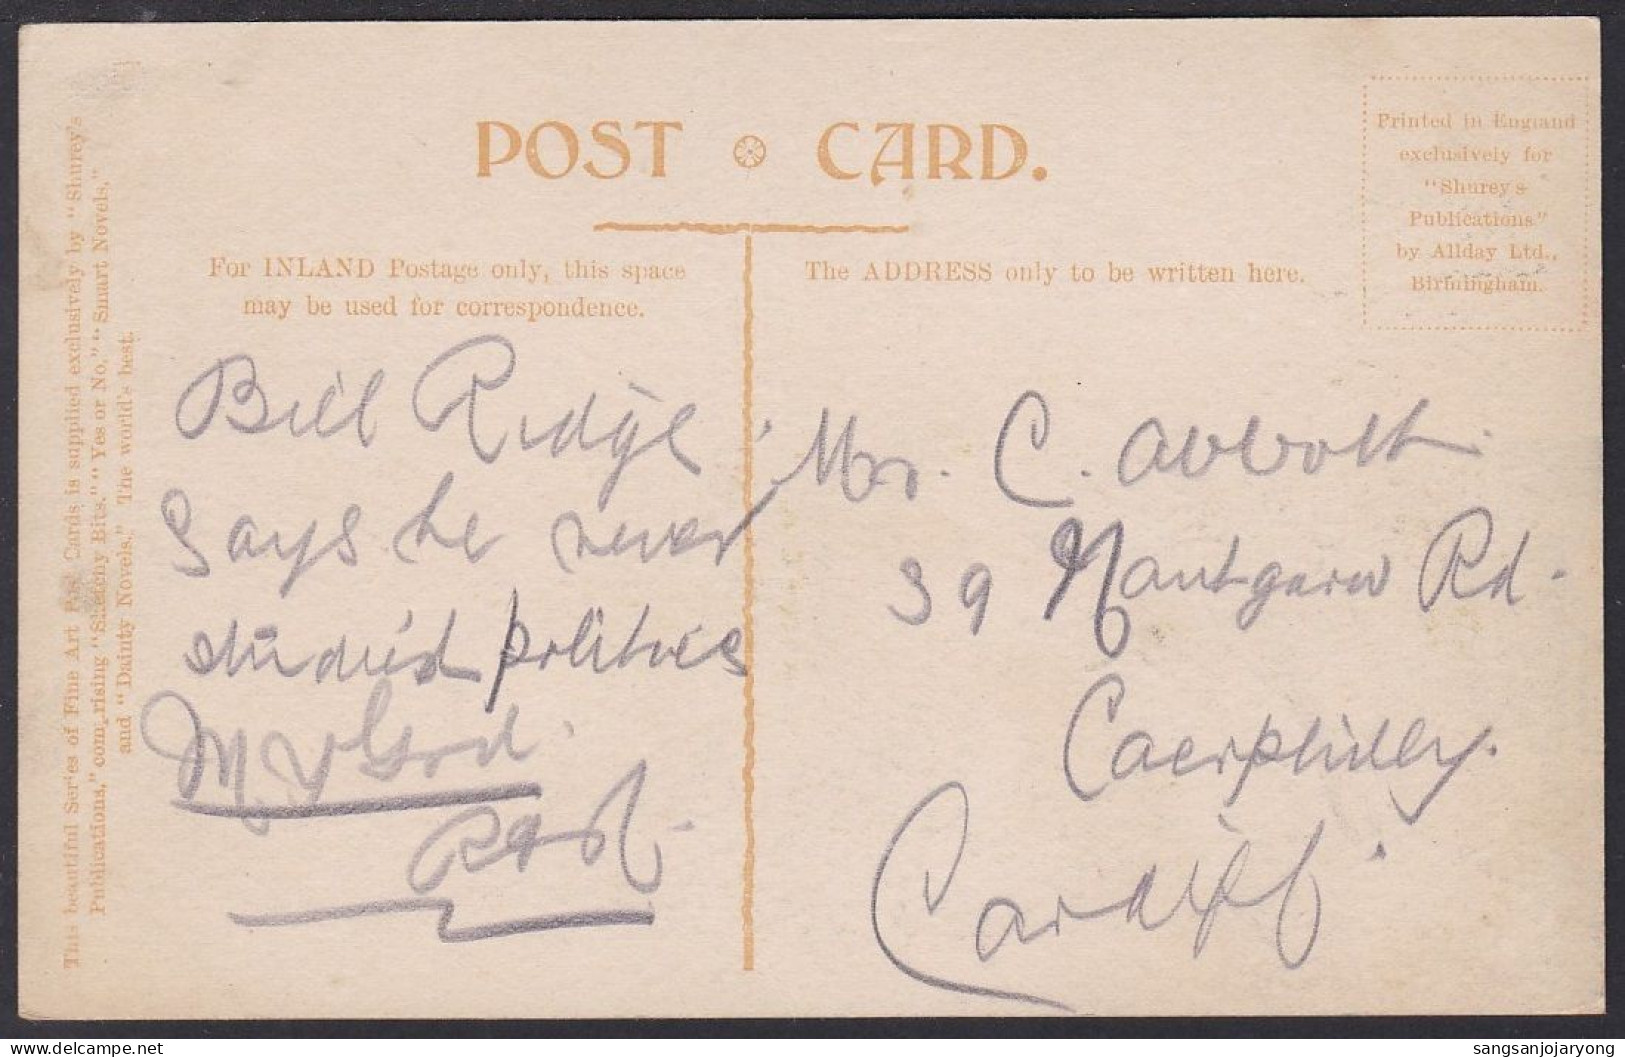 POST CARD.
Printed in England
exclusively for
"Shurey's
Publications"
by Allday Ltd.,
Birmingham.
For INLAND Postage only, this space
may be used for correspondence.
The ADDRESS only to be written here.
This beautiful Series of Fine Art Post Cards is supplied exclusively by "Shurey's
Publications," comprising "Sketchy Bits," "Yes or No," "Smart Novels,"
and "Dainty Novels." The world's best.
Bill Ridge
says he never
studied politics
My Gord.
Mrs. C. Abbott
39 Nantgarw Rd.
Caerphilly.
Cardiff
sangsanjojaryong